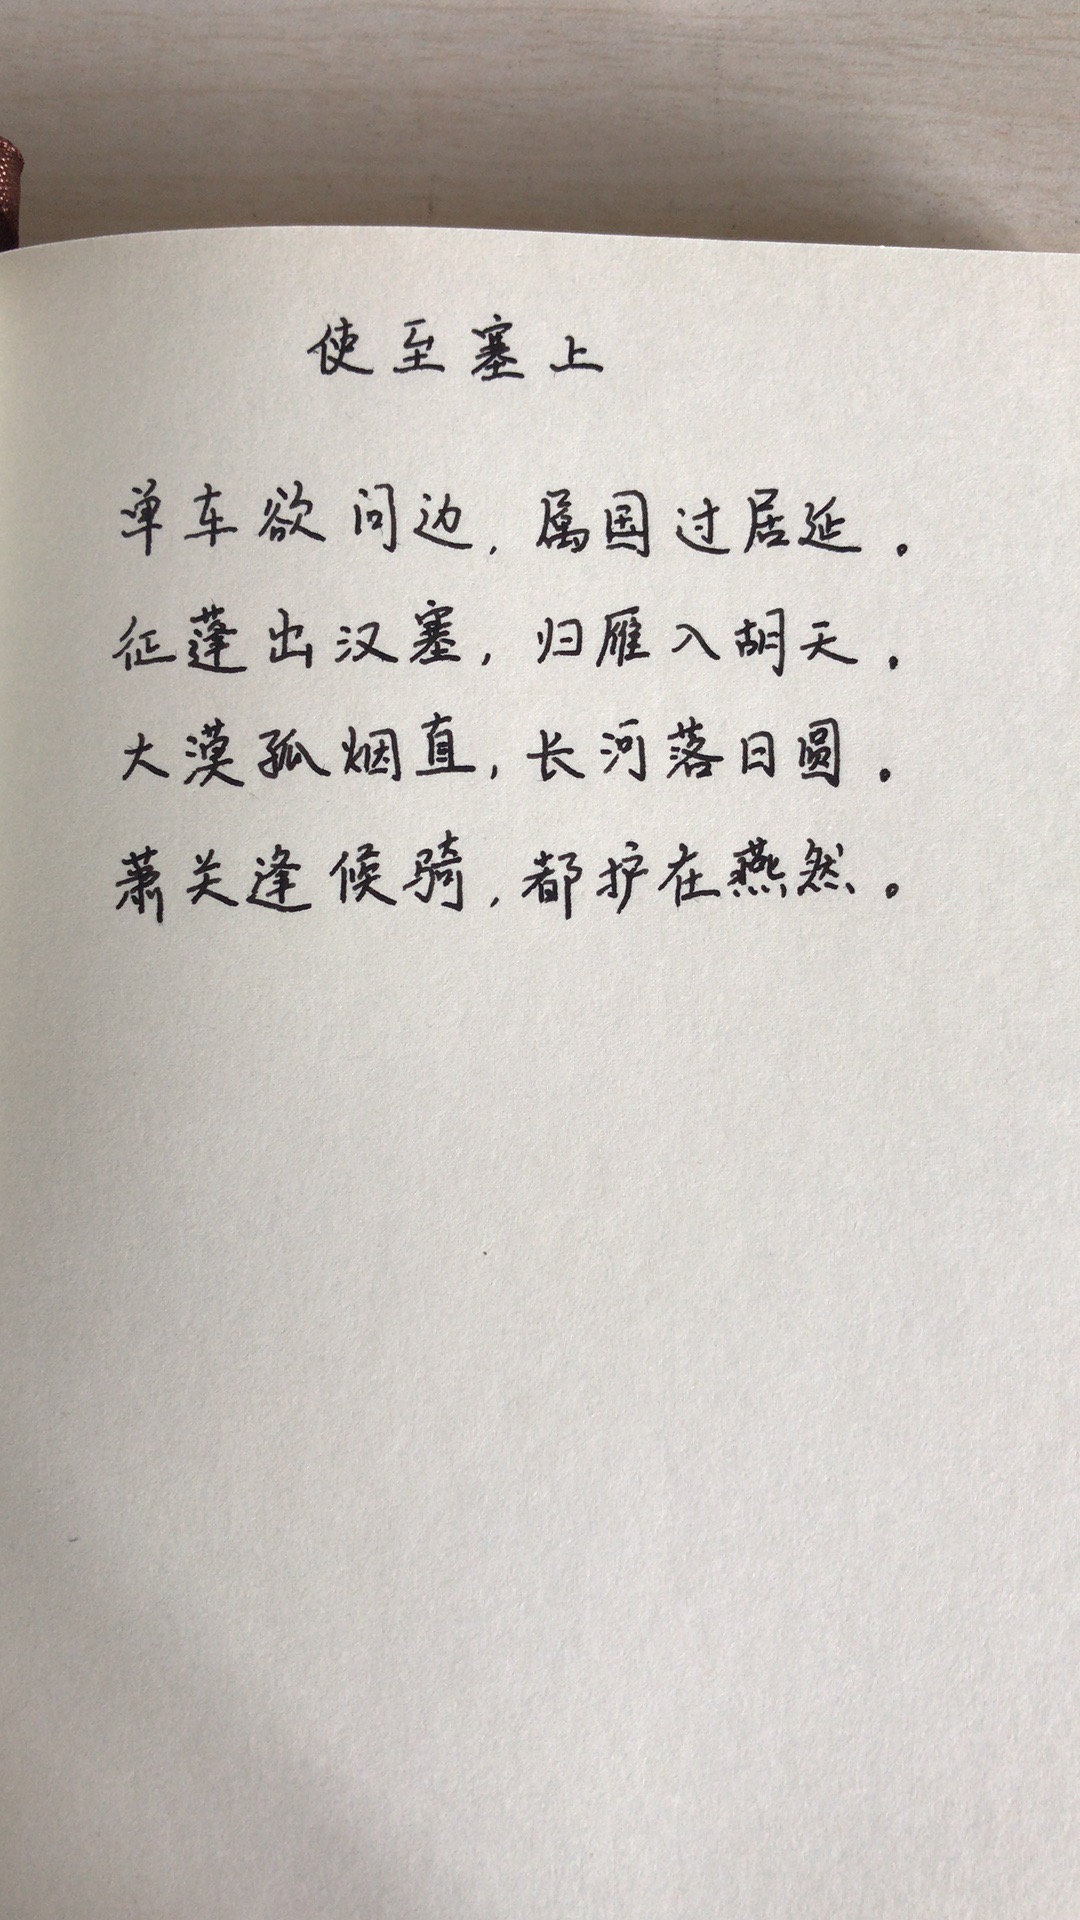 使至塞上
单车欲问边,属国过居延。
征蓬出汉塞,归雁入胡天。
大漠孤烟直,长河落日圆。
萧关逢候骑,都护在燕然。